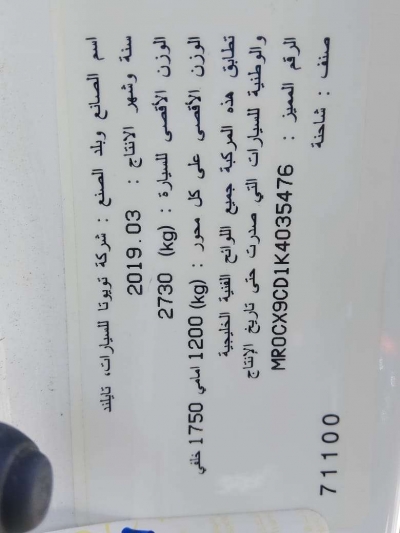 اسم الصانع وبلد الصنع : شركة تويوتا للسيارات، تايلند
سنة وشهر الانتاج : 2019.03
الوزن الأقصى للسيارة : 2730 (kg)
الوزن الأقصى على كل محور : 1200 (kg) امامي 1750 خلفي
تطابق هذه المركبة جميع اللوائح الفنية الخليجية
والوطنية للسيارات التي صدرت حتى تاريخ الإنتاج
الرقم المميز : MR0CX9CD1K4035476
صنف : شاحنة
71100